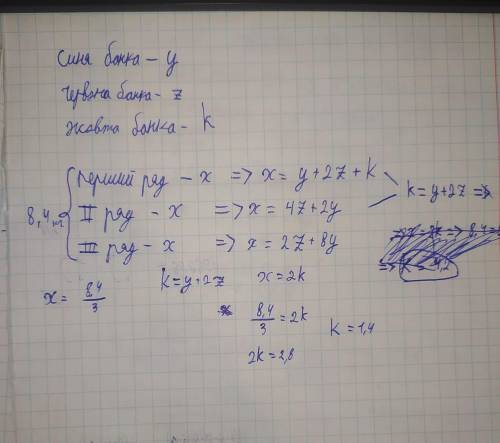 Синя банка – y
Червона банка - z
Жовта банка - k
8,4 кг
Перший ряд – x => x = y + 2z + k
II ряд - x => x = 4z + 2y
III ряд - x => x = 2z + 8y
k = y + 2z =>
x = 8,4/3
k = y + 2z x = 2k
8,4/3 = 2k
2k = 2,8
k = 1,4